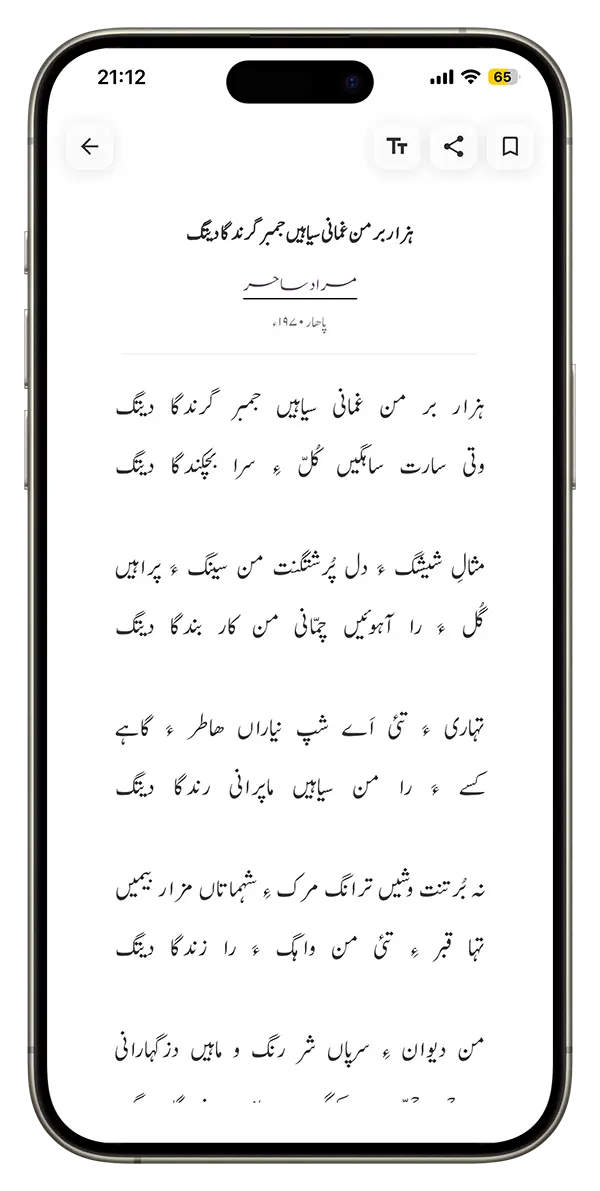 21:12
65
ہزار بر من غمانی سیاہیں جمبر گرندگا دیتگ
مراد ساحر
پاھار ۱۹۷۰ء
ہزار بر من غمانی سیاہیں جمبر گرندگا دیتگ
وتی سارت ساہگیں گُلّ ءِ سرا بچکندگا دیتگ
مثالِ شیشگ ءَ دل پُرشتگنت من سینگ ءَ پراہیں
گُل ءَ را آہوئیں چمّانی من کار بندگا دیتگ
تہاری ءَ تئی اَے شپ نیاراں ھاطر ءَ گاہے
کسے ءَ را من سیاہیں ماپرانی رندگا دیتگ
نہ بُرتنت وشیں ترانگ مرک ءِ شہماتاں مزار بیمیں
تہا قبر ءِ تئی من واہگ ءَ را زندگا دیتگ
من دیوان ءِ سرپاں شر رنگ و ماہیں دزگہارانی